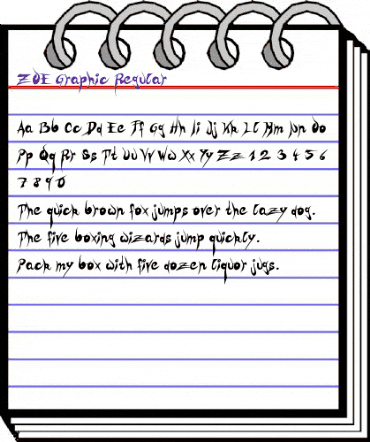 ZOE Graphic Regular
Aa Bb Cc Dd Ee Ff Gg Hh Ii Jj Kk Ll Mm Nn Oo
Pp Qq Rr Ss Tt Uu Vv Ww Xx Yy Zz 1 2 3 4 5 6
7 8 9 0
The quick brown fox jumps over the lazy dog.
The five boxing wizards jump quickly.
Pack my box with five dozen liquor jugs.